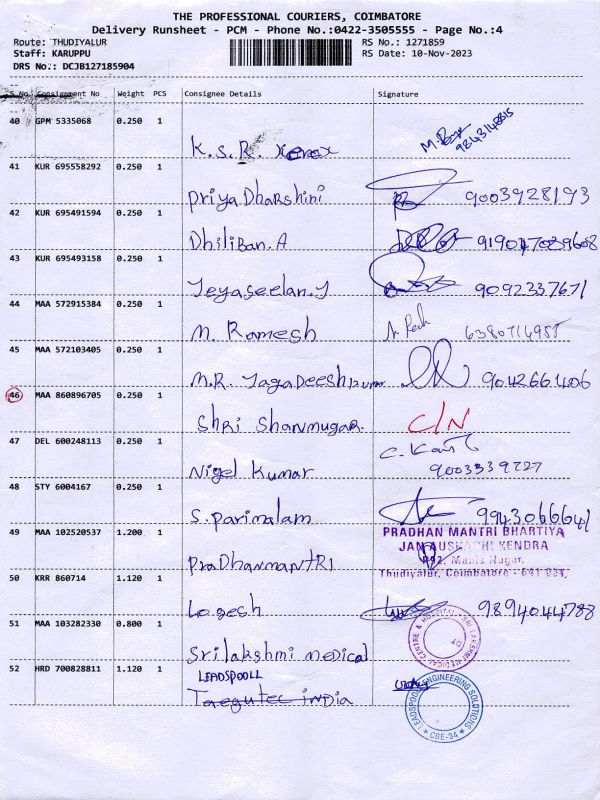 THE PROFESSIONAL COURIERS, COIMBATORE
Delivery Runsheet - PCM - Phone No.:0422-3505555 - Page No.:4
Route: THUDIYALUR RS No.: 1271859
Staff: KARUPPU RS Date: 10-Nov-2023
DRS No.: DCJB127185904
S No. Consignment No Weight PCS Consignee Details Signature
40 GPM 5335068 0.250 1
K.S.R. Xerox
41 KUR 695558292 0.250 1
Priya Dharshini 9003928193
42 KUR 695491594 0.250 1
Dhiliban.A 919047039608
43 KUR 695493158 0.250 1
Jeyaseelan.J 9092337671
44 MAA 572915384 0.250 1
M. Ramesh
45 MAA 572103405 0.250 1
M.R. Jagadeeshkumar 9042661406
46 MAA 860896705 0.250 1
Shri Shanmugar C/N
47 DEL 600248113 0.250 1
Nigel Kumar 9003339727
48 STY 6004167 0.250 1
S. Parimalam 9943066641
49 MAA 102520537 1.200 1
PRADHAN MANTRI BHARTIYA
JAN AUSHADHI KENDRA
Nagar,
Thudiyalur, Coimbatore
PraDhanmanTRI
50 KRR 860714 1.120 1
Logesh 9894044788
51 MAA 103282330 0.800 1
Srilakshmi medical
SRI LAKSHMI MEDICAL CENTRE & HOSPITAL
52 HRD 700828811 1.120 1
LEADSPOOLL
Taegutec india
LEADSPOOLL ENGINEERING SOLUTIONS
CBE-34